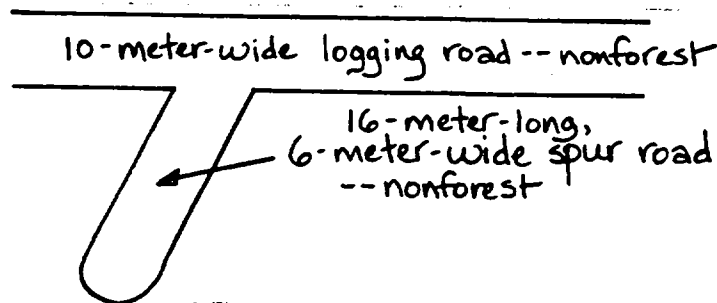 10-meter-wide logging road -- nonforest
16-meter-long,
6-meter-wide spur road
-- nonforest